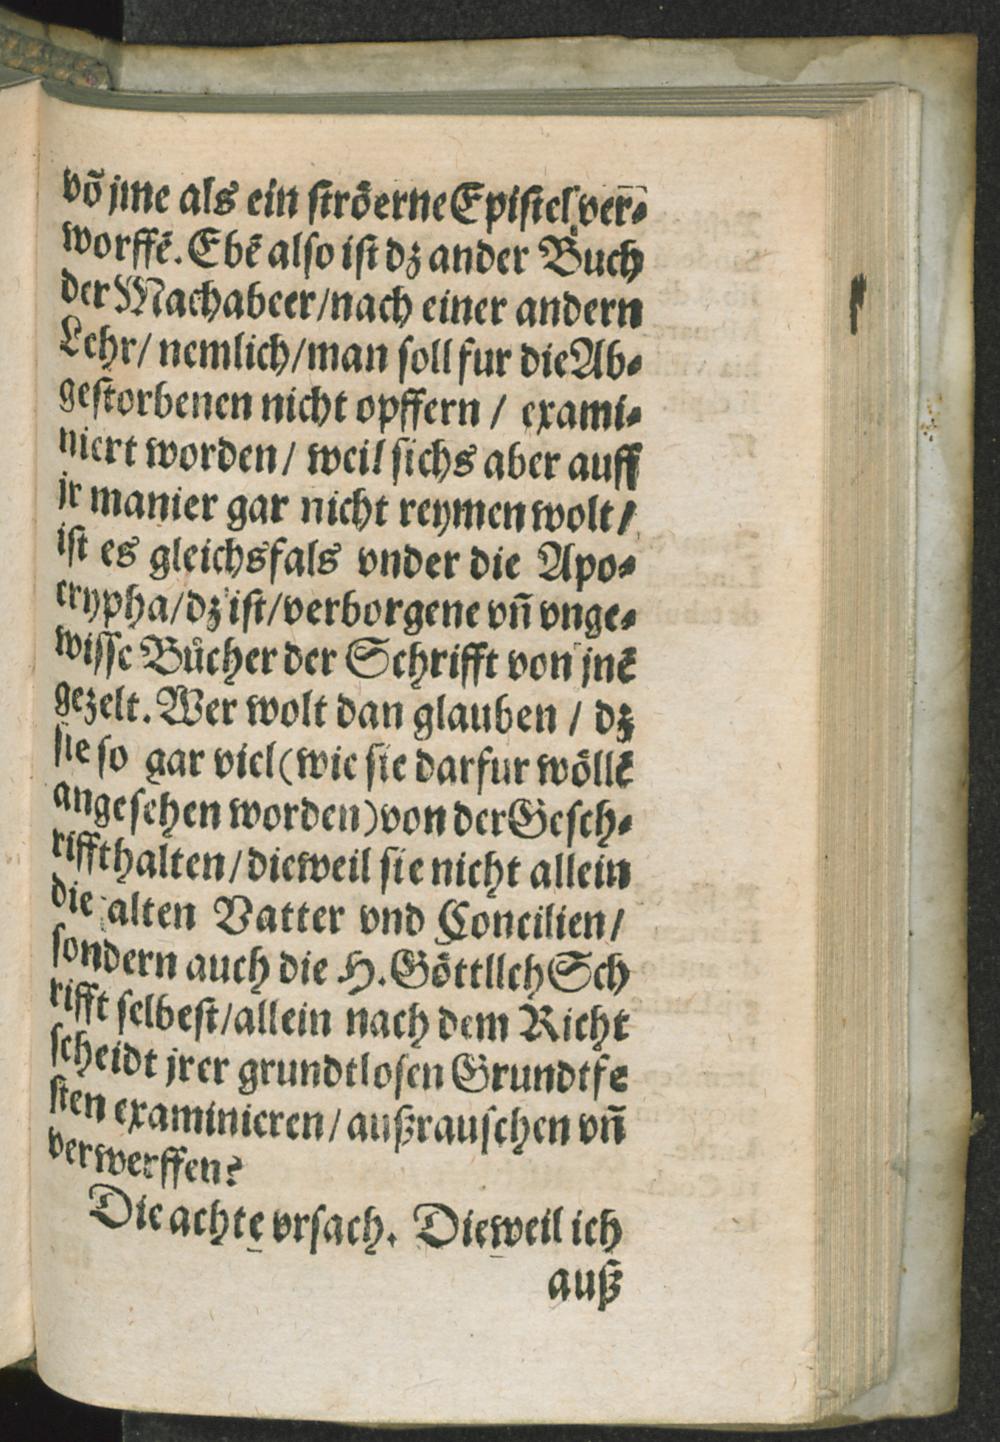 võ jme als ein ströerne Epistel ver⸗
worffẽ. Ebẽ also ist dz ander Buch
der Machabeer/nach einer andern
Lehr/ nemlich/man soll fur die Ab⸗
gestorbenen nicht opffern / exami⸗
niert worden/ weil sichs aber auff
jr manier gar nicht reymen wolt/
ist es gleichsfals vnder die Apo⸗
crypha/dz ist/verborgene vñ vnge⸗
wisse Bůcher der Schrifft von jnẽ
gezelt. Wer wolt dan glauben / dz
sie so gar viel(wie sie darfur wöllẽ
angesehen worden)von der Gesch⸗
riffthalten/dieweil sie nicht allein
die alten Vatter vnd Concilien/
sondern auch die H. Göttllch Sch
rifft selbest/allein nach dem Richt
scheidt jrer grundtlosen Grundtfe
sten examinieren/außrauschen vñ
verwerffen?
Die achte vrsach. Dieweil ich
auß